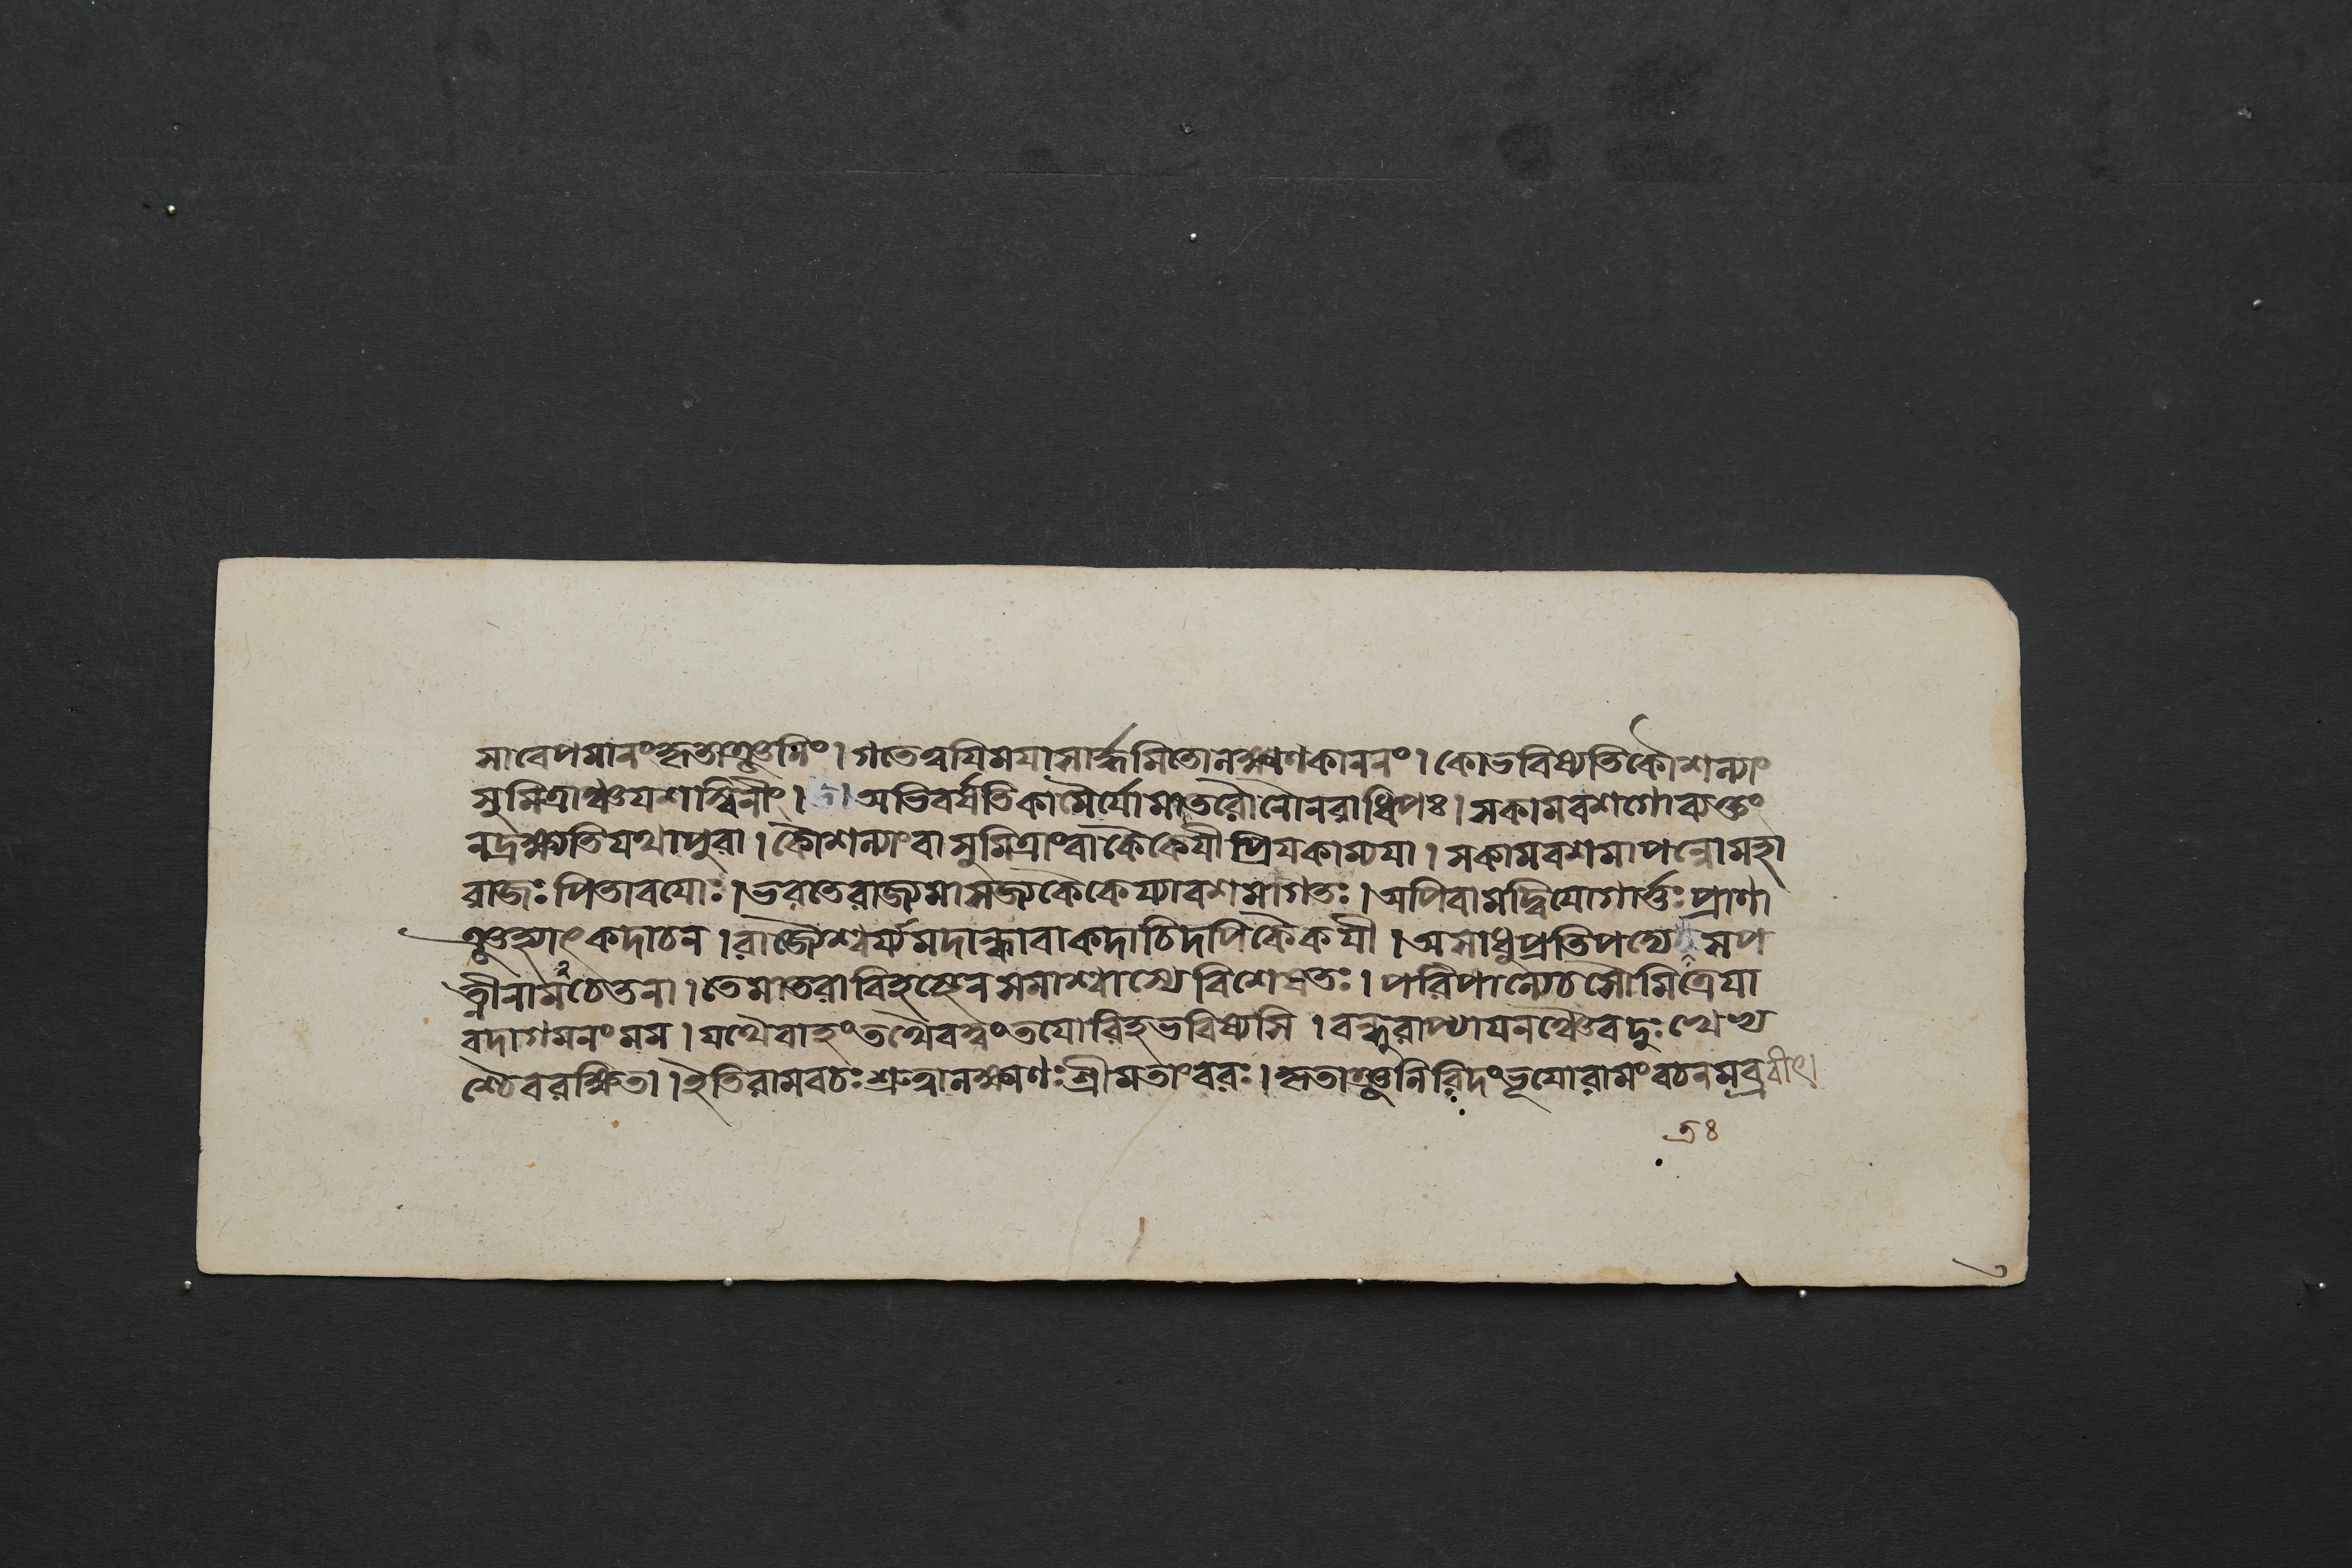 সাবেপমানংকৃতাঞ্জলিং।গতেত্বযিমযাসার্দ্ধমিতোলক্ষ্মণকাননং।কোভবিষ্যতিকৌশল্যাং
সুমিত্রাঞ্চযশস্বিনীং।অভিবর্ষতিকামৈর্যোমাতরৌনৌনরাধিপঃ।সকামবশগোব্যক্তং
নদ্রক্ষ্যতিযথাপুরা।কৌশল্যাংবাসুমিত্রাংবাকৈকেযীপ্রিযকাম্যযা।সকামবশমাপন্নোমহা
রাজঃপিতাবযোঃ।ভরতেরাজ্যমাসজ্যকৈকেয্যাবশমাগতঃ।অপিবামদ্বিযোগার্ত্তঃপ্রাণা
ঞ্জহ্যাৎকদাচন।রাজ্যৈশ্বর্য্যমদান্ধাবাকদাচিদপিকৈকযী।অসাধুপ্রতিপদ্যেতসপ
ত্নীনামচেতনা।তেমাতরাবিহস্থেনসমাশ্বাস্যেবিশেষতঃ।পরিপাল্যেচসৌমিত্রেযা
বদাগমনংমম।যথৈবাহংতথৈবত্বংতযোরিহভবিষ্যসি।বন্ধুরাপ্যাযনঞ্চৈবদুঃখেভ্য
শ্চৈবরক্ষিতা।ইতিরামবচঃশ্রুত্বালক্ষ্মণঃশ্রীমতাংবরঃ।কৃতাঞ্জলিরিদংভূযোরামংবচনমব্রবীৎ।
৭৪